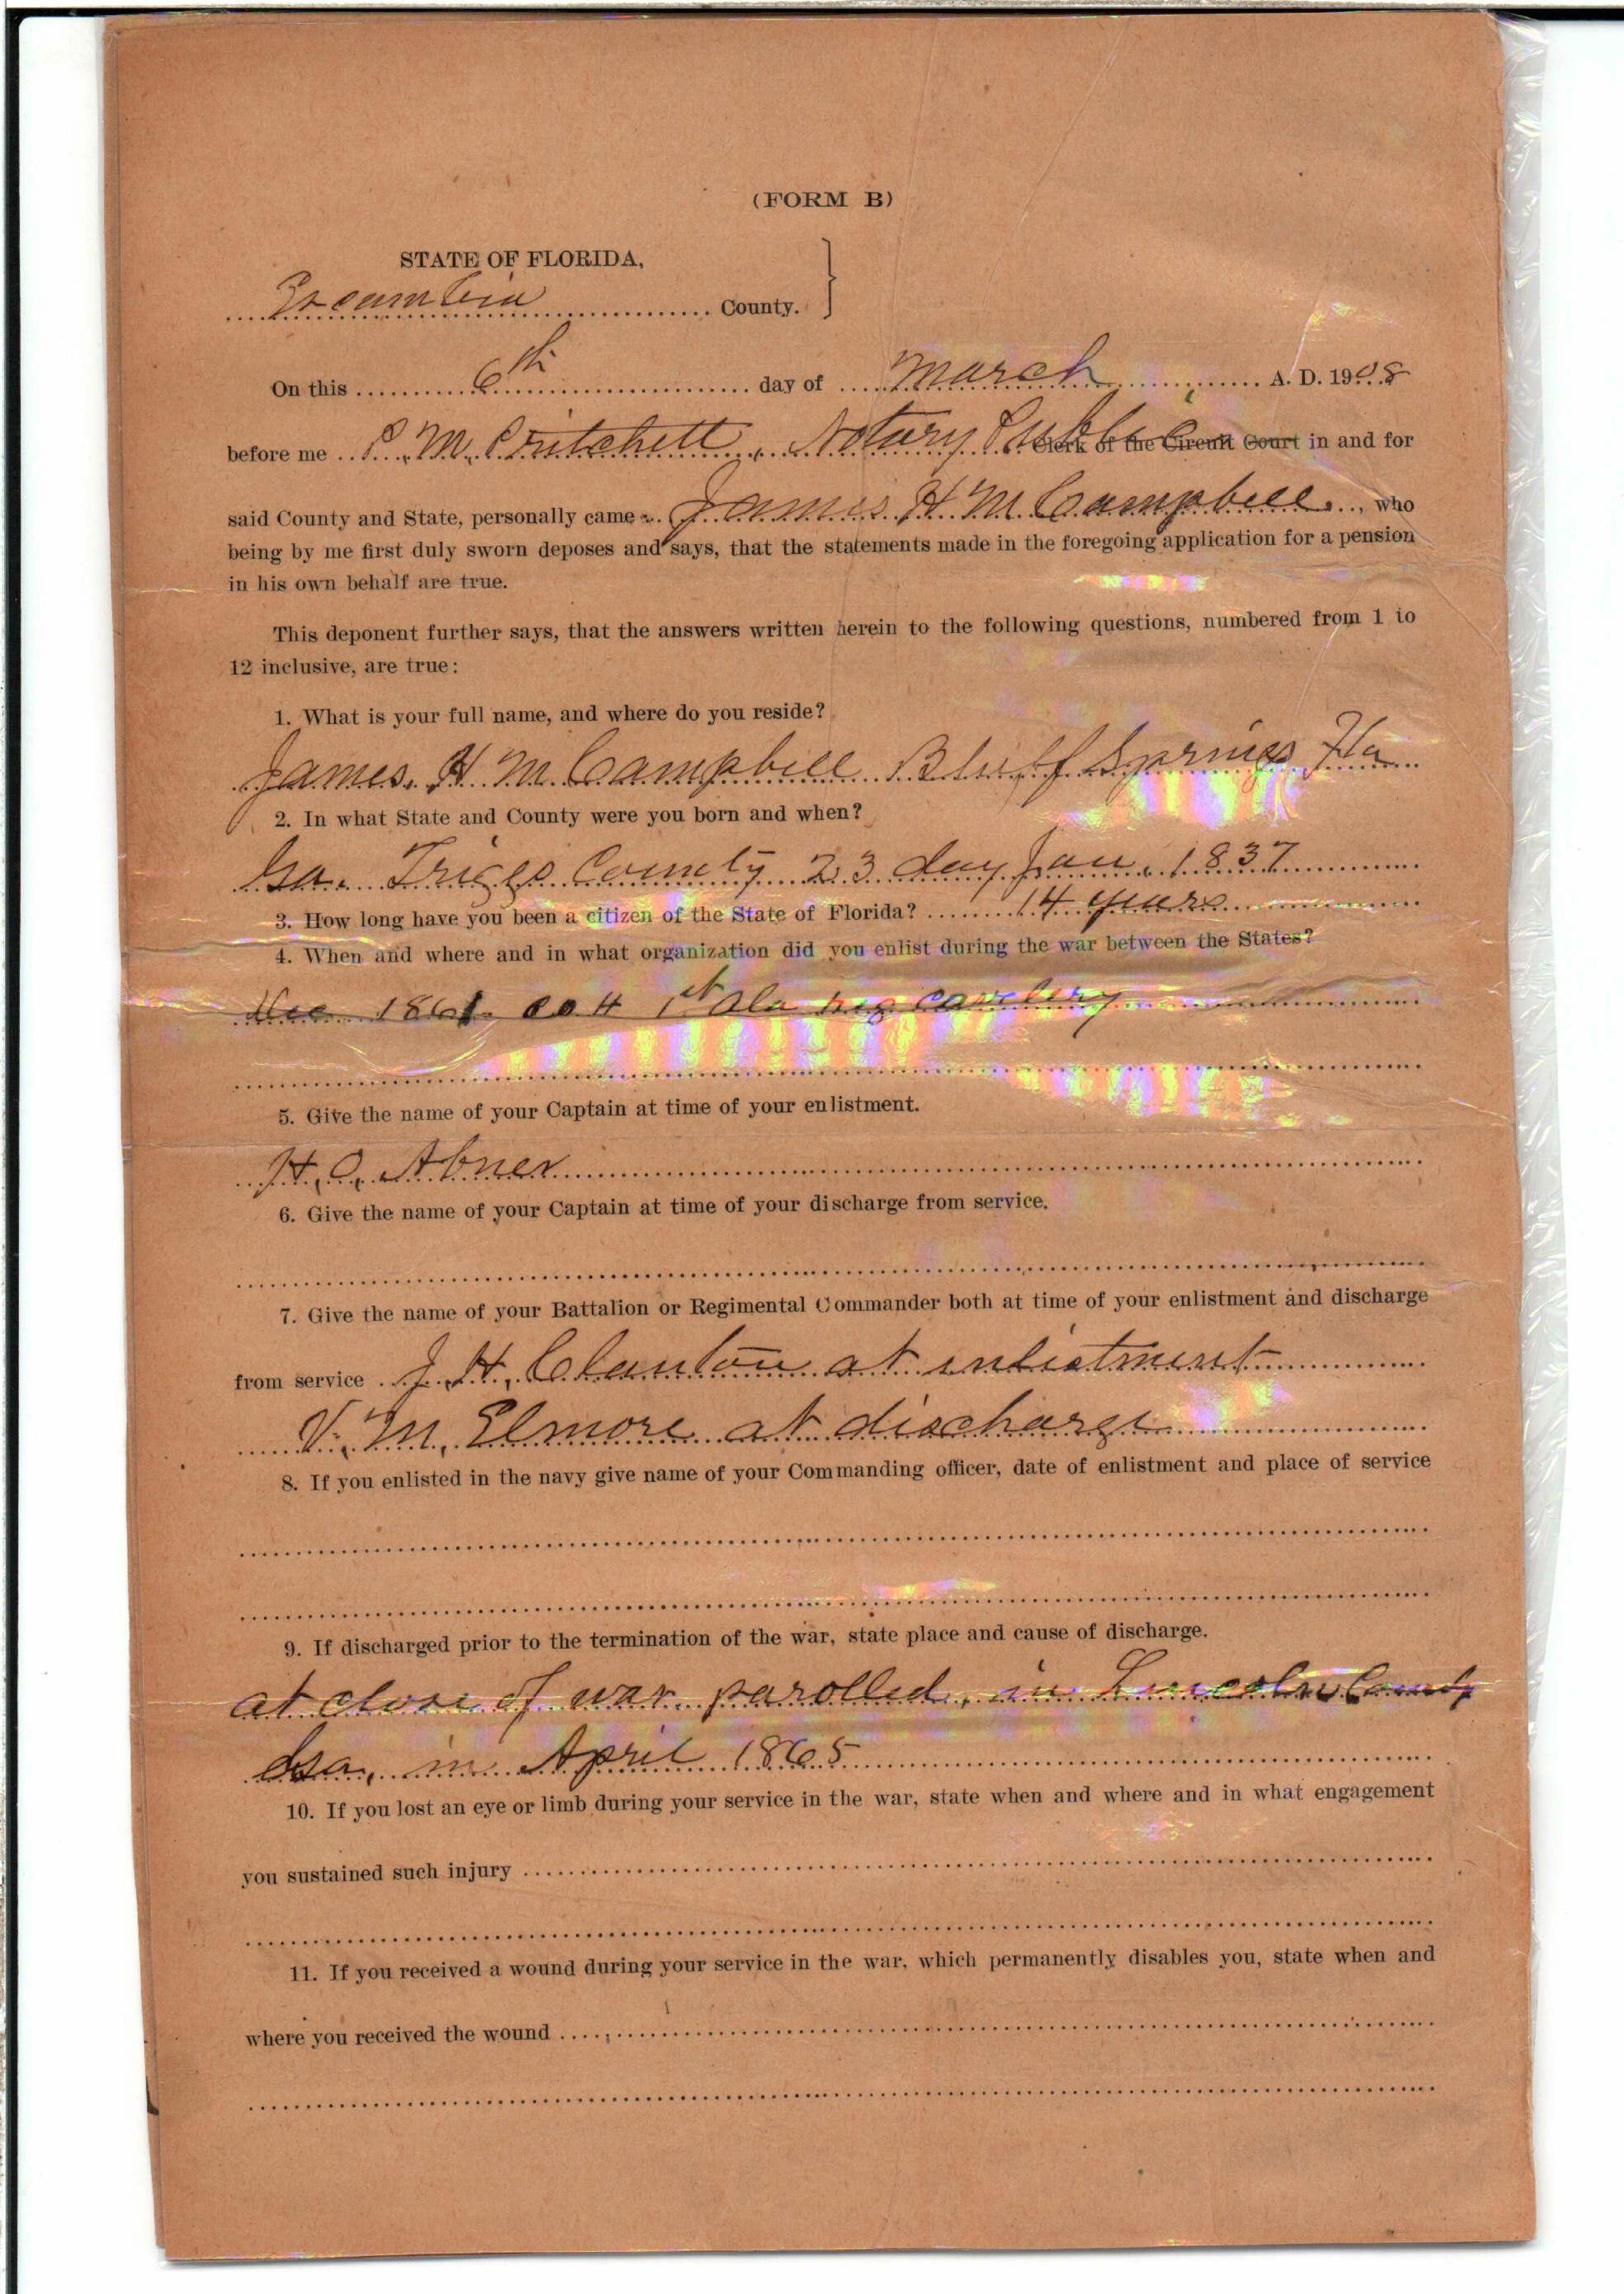 (FORM B)
STATE OF FLORIDA,
Escambia County.
On this 6th day of March A. D. 1908
before me P. M. Pritchett, Notary Public Clerk of the Circuit Court in and for
said County and State, personally came James H. M. Campbell who
being by me first duly sworn deposes and says, that the statements made in the foregoing application for a pension
in his own behalf are true.
This deponent further says, that the answers written herein to the following questions, numbered from 1 to
12 inclusive, are true:
1. What is your full name, and where do you reside?
James. H. M. Campbell Bluff Springs Fla
2. In what State and County were you born and when?
Ga. County 23 day Jan. 1837
3. How long have you been a citizen of the State of Florida? 14 years
4. When and where and in what organization did you enlist during the war between the States?
Dec 1861 co H 1st Ala reg cavelery
5. Give the name of your Captain at time of your enlistment.
H. O. Abner
6. Give the name of your Captain at time of your discharge from service.
7. Give the name of your Battalion or Regimental Commander both at time of your enlistment and discharge
from service J. H. Clanton at enlistment
V. M. Elmore at discharge
8. If you enlisted in the navy give name of your Commanding officer, date of enlistment and place of service
9. If discharged prior to the termination of the war, state place and cause of discharge.
at close of war parolled, in Lincoln County
Ga, in April 1865
10. If you lost an eye or limb during your service in the war, state when and where and in what engagement
you sustained such injury
11. If you received a wound during your service in the war, which permanently disables you, state when and
where you received the wound